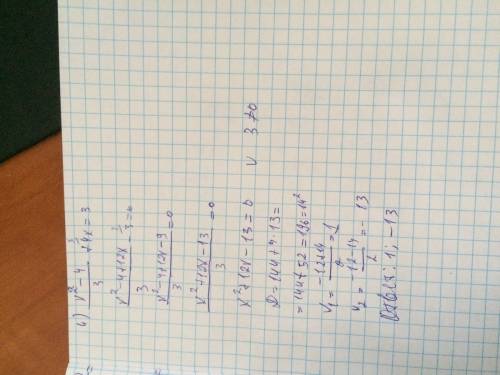 6) x² - 4 / 3 + 4x = 3
x² - 4 + 12x / 3 - 3 = 0
x² - 4 + 12x - 9 / 3 = 0
x² + 12x - 13 / 3 = 0
x² + 12x - 13 = 0 ∨ 3 ≠ 0
D = 144 + 4 · 13 =
= 144 + 52 = 196 = 14²
x₁ = -12 + 14 / 2 = 1
x₂ = -12 - 14 / 2 = -13
Ответ: 1; -13